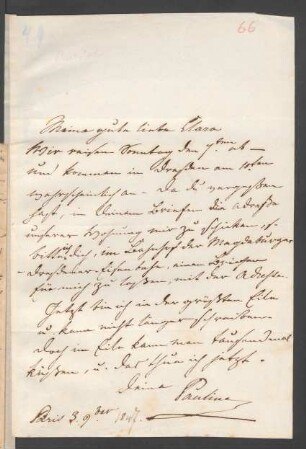 66
Meine gute liebe Clara
Wir reisen Sonntag den 7ten ab –
und kommen in Dresden am 10ten
wahrscheinlich an – Da du vergessen
hast, in deinen Briefen die Adresse
unserer Wohnung mir zu schicken, so
bitte ich dich, im Bahnhof der Magdeburger
Dresdener Eisenbahn, einen Brief
für mich zu lassen, mit der Adresse.
Jetzt bin ich in der grössten Eile
u. kann nicht länger schreiben
doch in Eile kann man tausendmal
küssen, u. das thue ich jetzt.
Deine
Pauline
Paris 3. 9ber 1847.